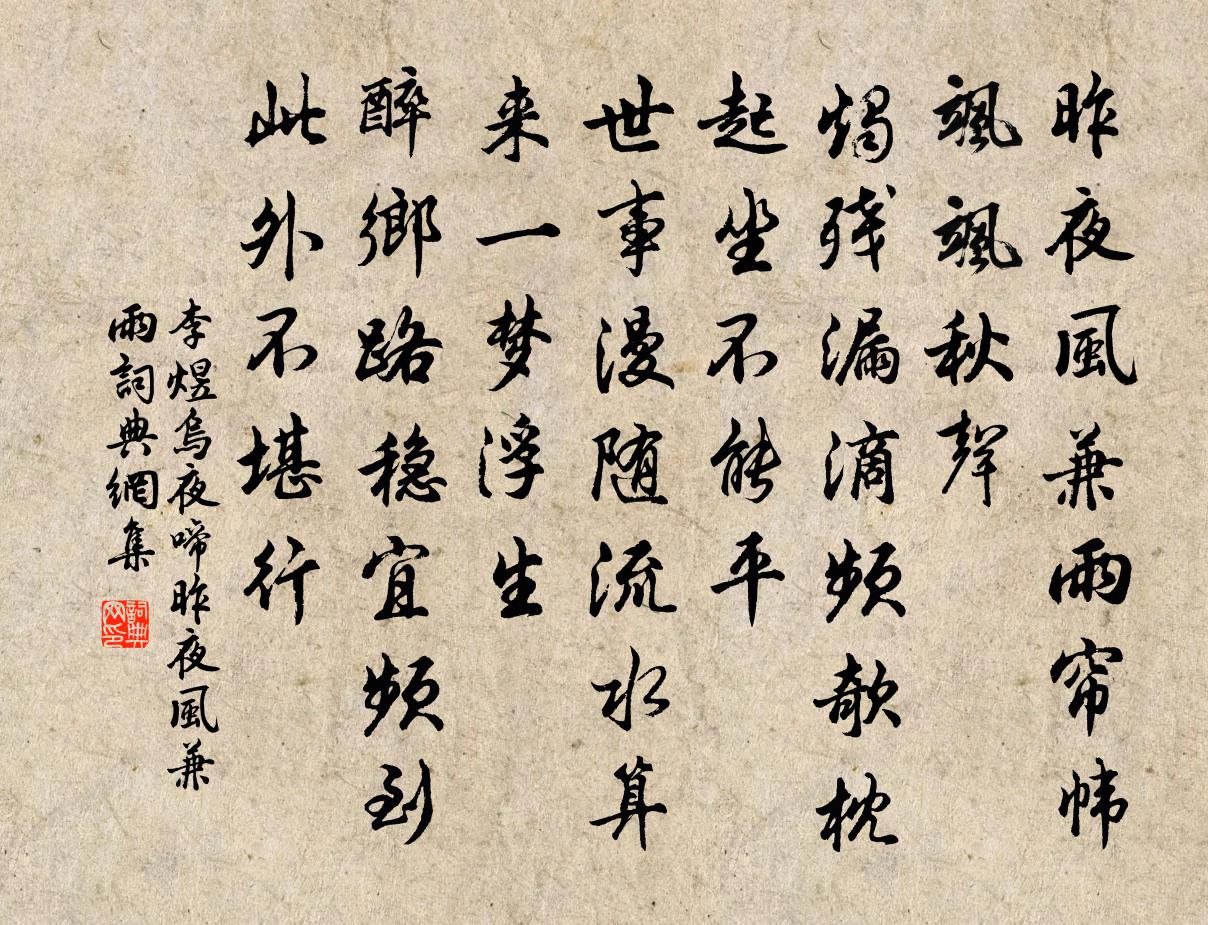 昨夜風兼雨帘幃
飒飒秋聲
燭残漏滴频欹枕
起坐不能平
世事漫随流水算
来一梦浮生
醉鄉路稳宜频到
此外不堪行
李煜烏夜啼昨夜風兼
雨詞典網集
詞典网印